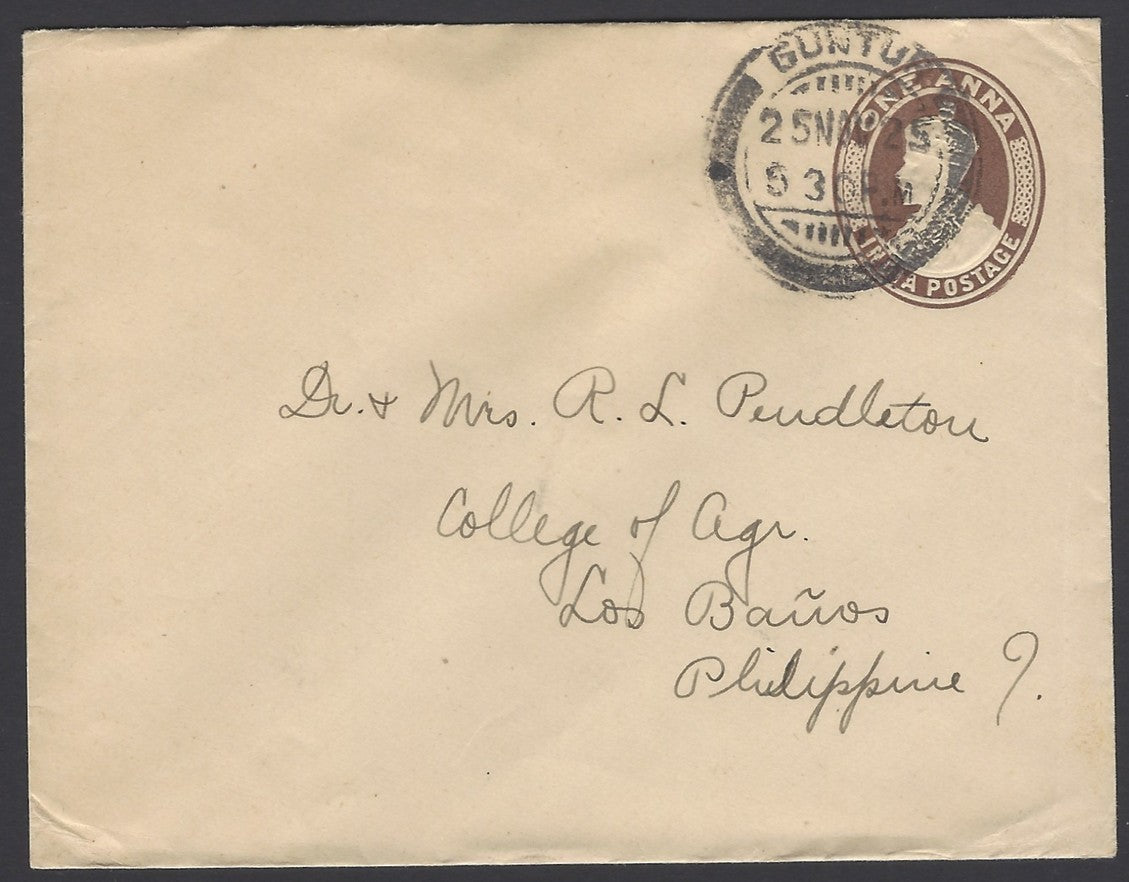 GUNTUR
25 NOV 25
5 30 P.M
ONE ANNA
INDIA POSTAGE
Dr. & Mrs. R. L. Pendleton
College of Agr.
Los Baños
Philippine I.